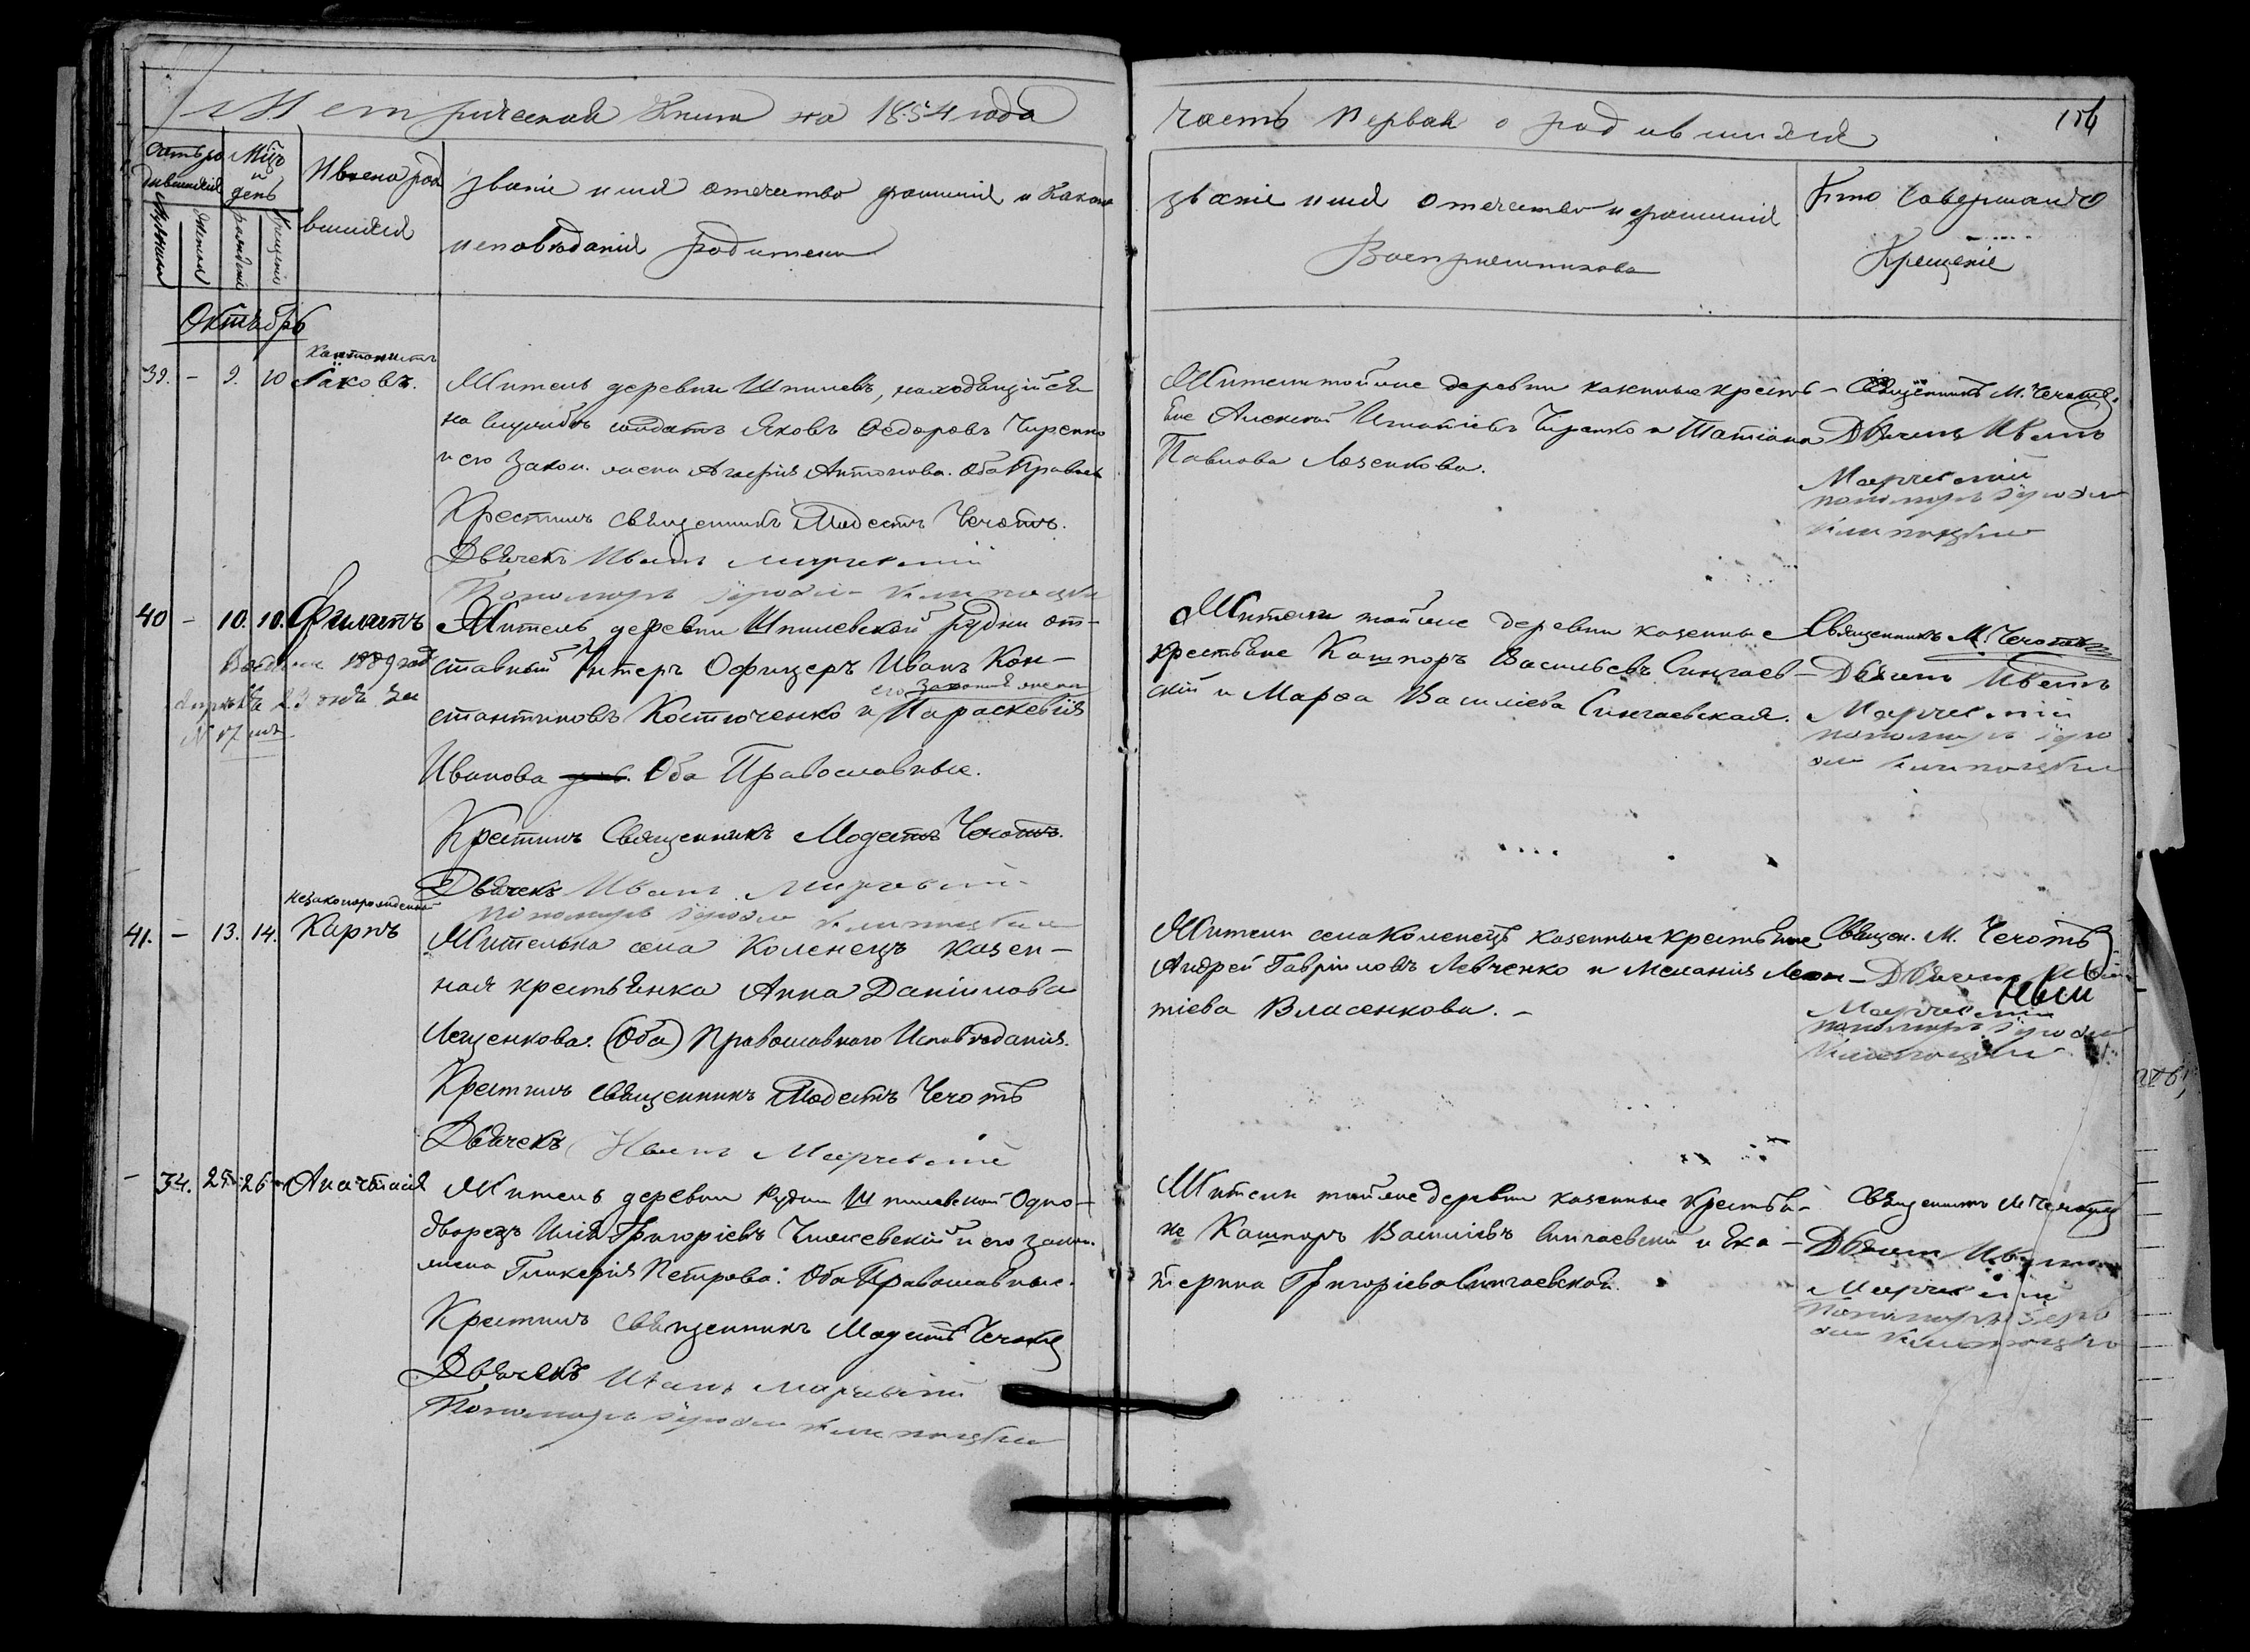 Метрической книги на 1854 года
Часть Первая о родившихся
156
Счетъ ро
дившихся
Мцъ
и
день
Имена род
вшихся
Званіе имя отечество фамиліи и какого
исповѣданія родители
Званіе имя отечество и фамилія
Воспріемниковъ
Кто Совершалъ
Крещеніе
Октябрь
39. – 9. 10
Кантонистъ
Іаковъ.
Житель деревни Шпилевъ, находящійся
на службѣ солдатъ Яковъ Ѳедоровъ Чиренко
и его закон. жена Агафія Антонова. Оба Правосл
Крестилъ священникъ Модестъ Чечотъ.
Дьячекъ Иванъ
Пономаръ
Жители той же деревни казенные кресть-
яне Алексей Игнатіевъ Чиренко и Татіана
Павлова Лозенкова.
Священникъ М. Чечотъ.
Дьячекъ Иванъ
пономаръ
40 – 10. 10. Филипъ
1889 год
апреля 23 дня за
№ 17
Житель деревни Шпилевской рудни от-
ставный Унтеръ Офицеръ Иванъ Кон-
стантиновъ Костюченко и его законная жена Параскевія
Иванова Оба Православные.
Крестилъ Священникъ Модестъ Чечотъ.
Дьячекъ Иванъ
Пономаръ
Жители той же деревни казенные
крестьяне Кашпоръ Васильевъ Сингаев-
скій и Марѳа Василіева Сингаевская.
Священникъ М. Чечотъ
Дьячекъ Иванъ
пономаръ
41. – 13. 14.
незаконорожденный
Карпъ
Жителька села Коленецъ казен-
ная крестьянка Анна Даніилова
Лещенкова. (Оба) Православнаго Исповѣданія.
Крестилъ священникъ Модестъ Чечотъ
Дьячекъ Иванъ
Жители села Коленецъ казенные крестьяне
Андрей Гавріиловъ Левченко и Меланія Леон-
тіева Власенкова. –
Священ. М. Чечотъ
Дьячекъ
пономаръ
– 34. 25. 26 Анастасія
Житель деревни Рудни Шпилевской Одно-
дворецъ Илія Григоріевъ Чижевскій и его закон.
жена Гликерія Петрова. Оба Православные.
Крестилъ Священникъ Модестъ Чечотъ
Дьячекъ Иванъ
Пономаръ
Жители той же деревни казенные крестья-
не Кашпоръ Василіевъ Сингаевскій и Ека-
терина Григоріева Сингаевской.
Священникъ М Чечотъ
Дьячекъ Иванъ
пономаръ